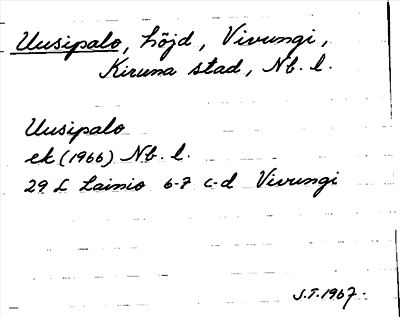 Uusipalo, höjd, Vivungi,
Kiruna stad, Nb. l.
Uusipalo
ek (1966) Nb. l.
29 L Lainio 6-7 c-d Vivungi
S.T. 1967.